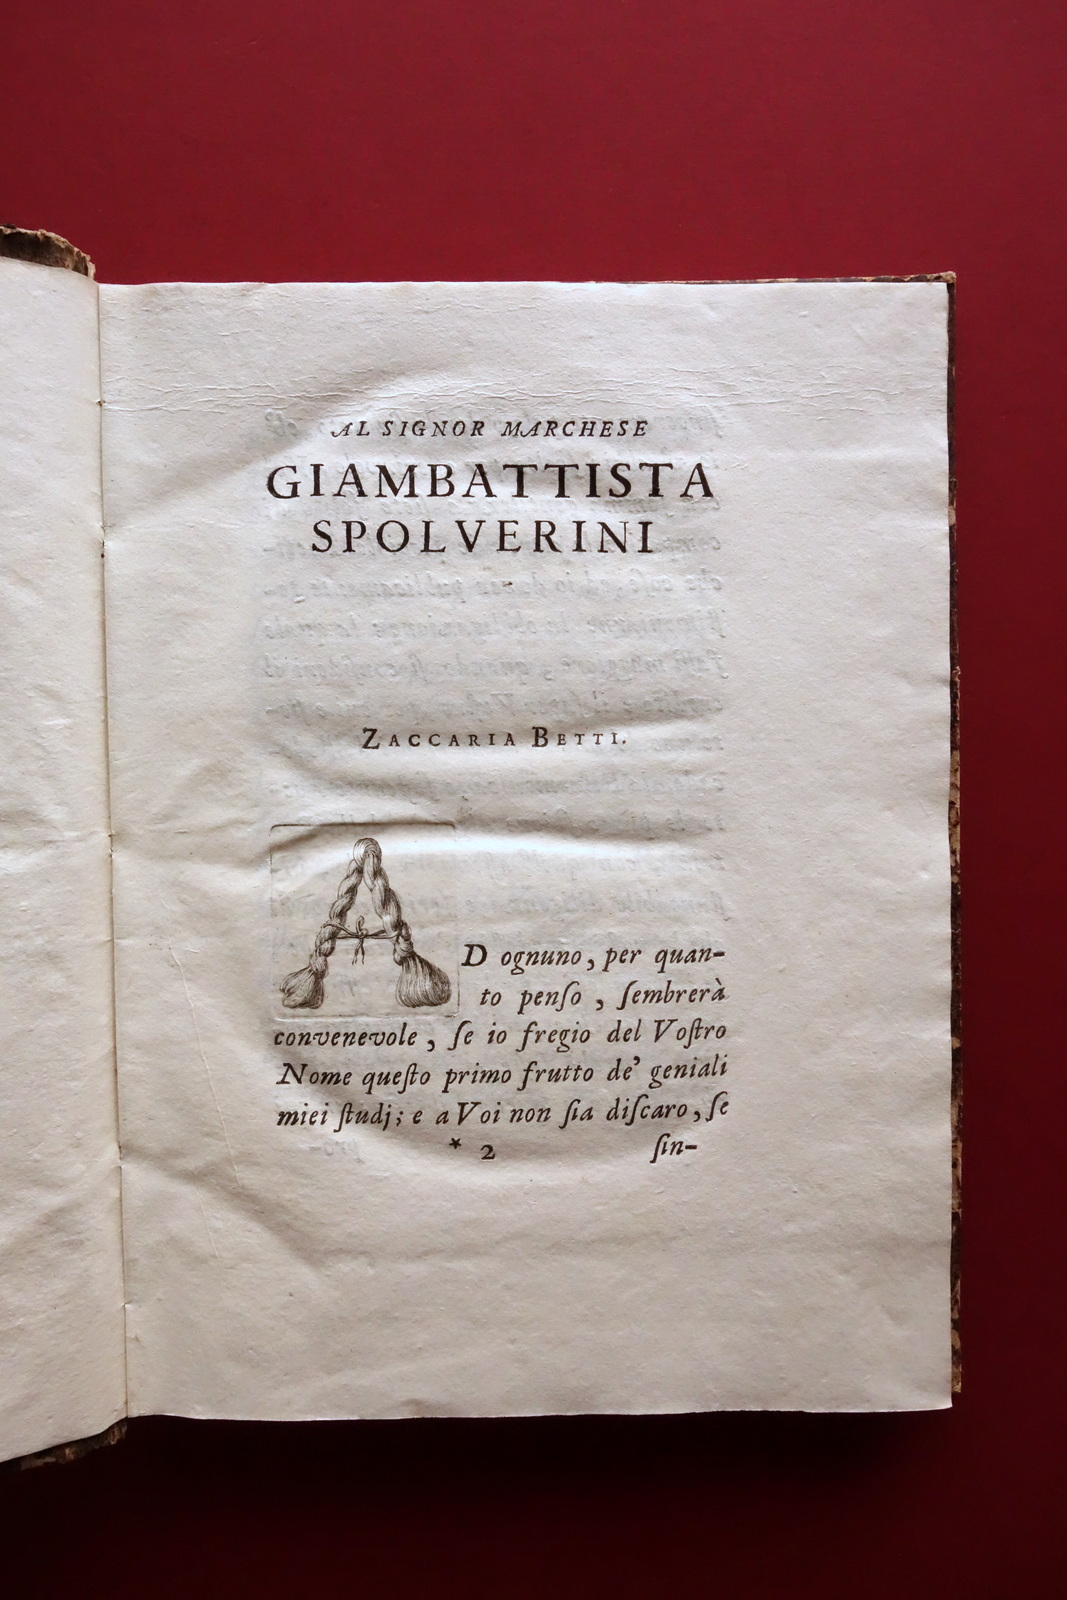 AL SIGNOR MARCHESE
GIAMBATTISTA
SPOLVERINI
ZACCARIA BETTI.
AD ognuno, per quan-
to penſo, ſembrerà
convenevole, ſe io fregio del Voſtro
Nome queſto primo frutto de' geniali
miei ſtudj; e a Voi non ſia diſcaro, ſe
* 2 ſin-